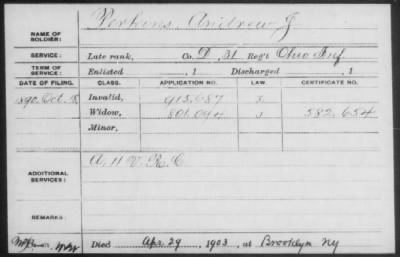 NAME OF SOLDIER: Perkins, Andrew J
SERVICE: Late rank, Co. D, 31 Reg't Ohio Inf.
TERM OF SERVICE: Enlisted , 1 Discharged , 1
DATE OF FILING. CLASS. APPLICATION NO. LAW. CERTIFICATE NO.
1890. Oct. Invalid, 913.687
Widow, 801.094 582.654
Minor,
ADDITIONAL SERVICES: A. 11 V. R. C
REMARKS:
Died Apr 29 , 1903, at Brooklyn Ny